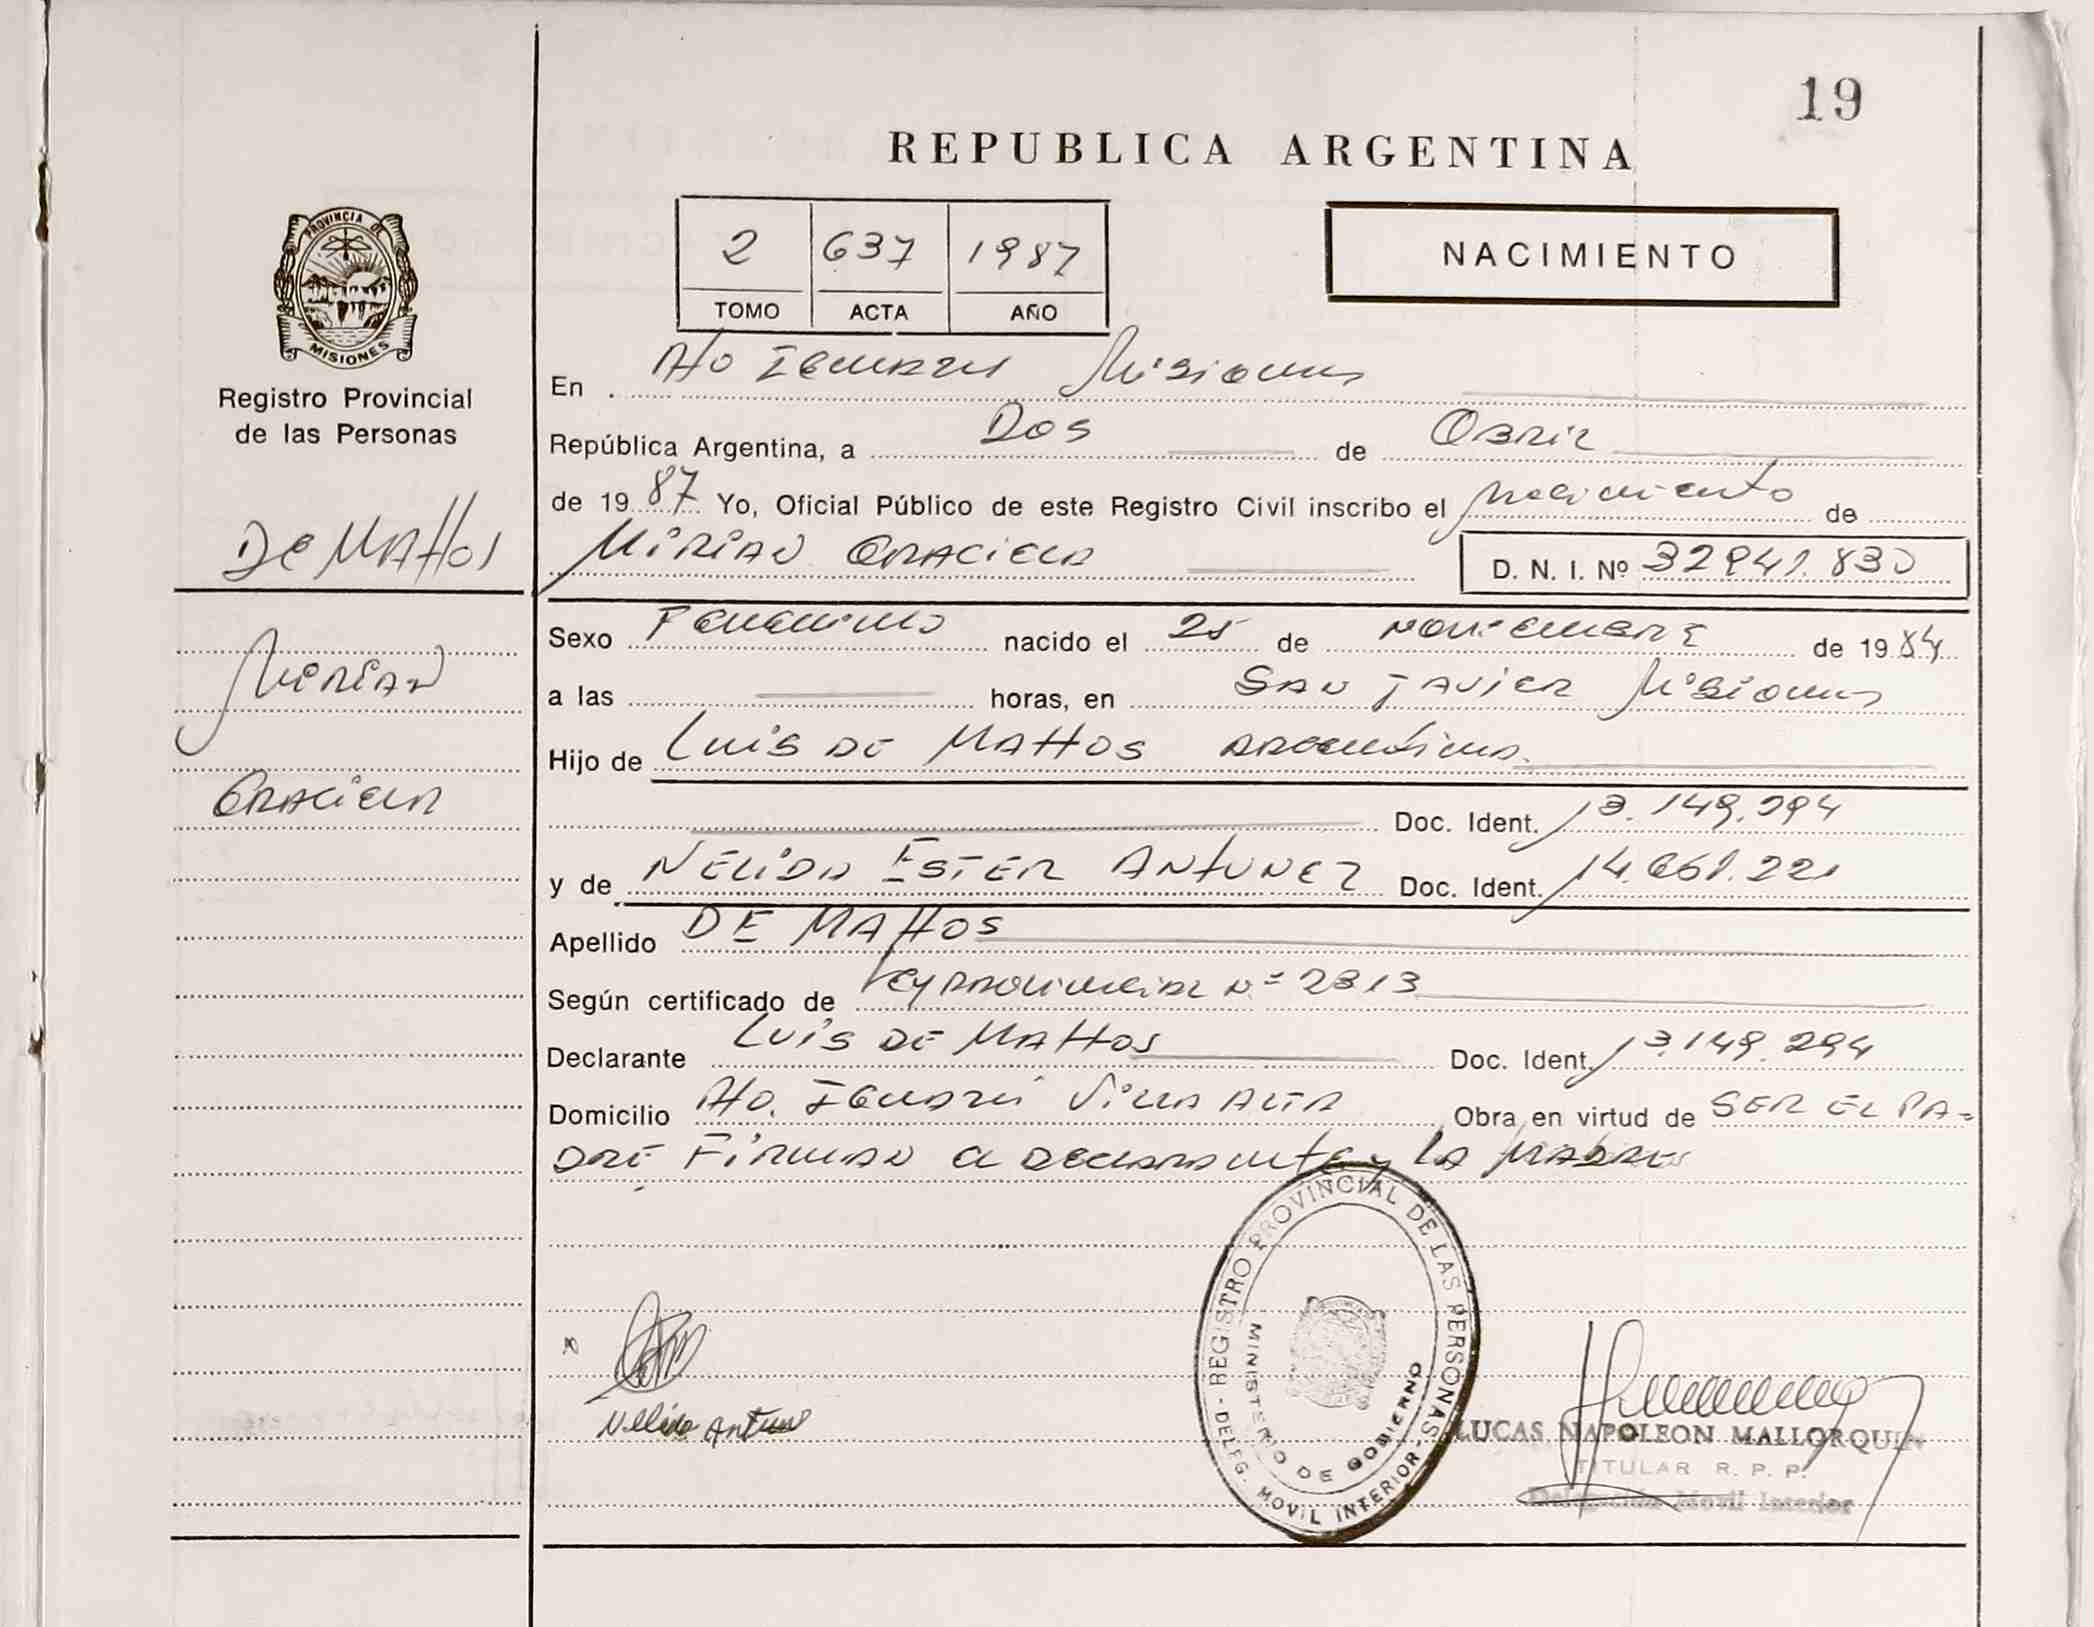 19
REPUBLICA ARGENTINA
2 637 1987
TOMO ACTA AÑO
NACIMIENTO
PROVINCIA DE
MISIONES
Registro Provincial
de las Personas
De Mattos
Mirian
Graciela
En Pto Iguazu Misiones
República Argentina, a Dos de Abril
de 1987 Yo, Oficial Público de este Registro Civil inscribo el nacimiento de
Mirian Graciela D. N. I. Nº 32941.830
Sexo Femenino nacido el 25 de noviembre de 1984
a las horas, en San Javier Misiones
Hijo de Luis De Mattos argentino.
Doc. Ident. 13.149.294
y de Nelida Ester Antunez Doc. Ident. 14.661.221
Apellido DE Mattos
Según certificado de Ley Provincial Nº 2313
Declarante Luis De Mattos Doc. Ident. 13.149.294
Domicilio Pto. Iguazú Villa Alta Obra en virtud de SER EL PA-
DRE Firman el declarante y LA MADRE
REGISTRO PROVINCIAL DE LAS PERSONAS - DELEG. MOVIL INTERIOR -
MINISTERIO DE GOBIERNO
LUCAS NAPOLEON MALLORQUIN
TITULAR R. P. P.
Delegación Móvil Interior